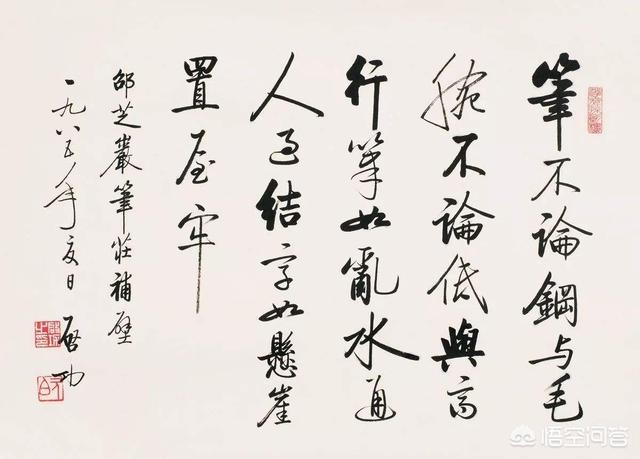 筆不論鋼与毛
腕不論低與高
行筆如亂水通
人過結字如懸崖
置屋牢
邵芝巖筆莊補壁
一九八五年夏日 啓功
悟空问答